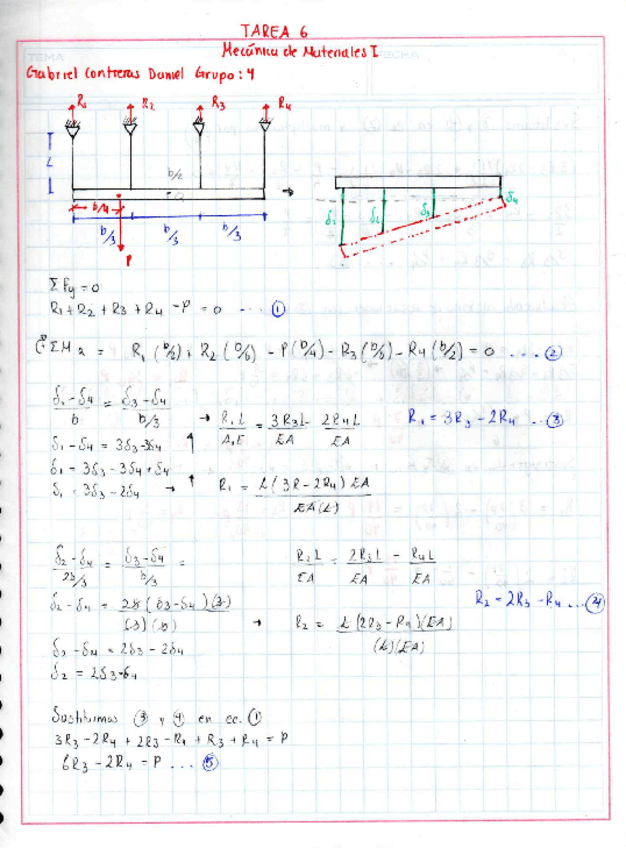 TAREA 6
TEMA
FECHA
Mecánica de Materiales I
Gabriel Contreras Daniel Grupo: 4
R₁ R₂ R₃ R₄
L
b/2
b/4
b/3 b/3 b/3
P
δ₁ δ₂ δ₃ δ₄
ΣFy=0
R₁+R₂+R₃+R₄-P=0 ... ①
ΣM = R₁(b/2)+R₂(b/6)-P(b/4)-R₃(b/6)-R₄(b/2)=0 ... ②
(δ₁-δ₄)/b = (δ₃-δ₄)/(b/3) → R₁L/A₁E = 3R₃L/EA - 2R₄L/EA R₁=3R₃-2R₄ ... ③
δ₁-δ₄=3δ₃-3δ₄
δ₁=3δ₃-3δ₄+δ₄
δ₁=3δ₃-2δ₄ → R₁ = L(3R-2R₄)EA/EA(L)
(δ₂-δ₄)/(2b/3) = (δ₃-δ₄)/(b/3) = R₂L/EA = 2R₃L/EA - R₄L/EA
R₂=2R₃-R₄ ... ④
δ₂-δ₄ = 2b(δ₃-δ₄)(3)/(3)(b) → R₂ = L(2R₃-R₄)(EA)/(L)(EA)
δ₂-δ₄=2δ₃-2δ₄
δ₂=2δ₃-δ₄
Sustituimos ③ y ④ en ec. ①
3R₃-2R₄+2R₃-R₄+R₃+R₄=P
6R₃-2R₄=P ... ⑤